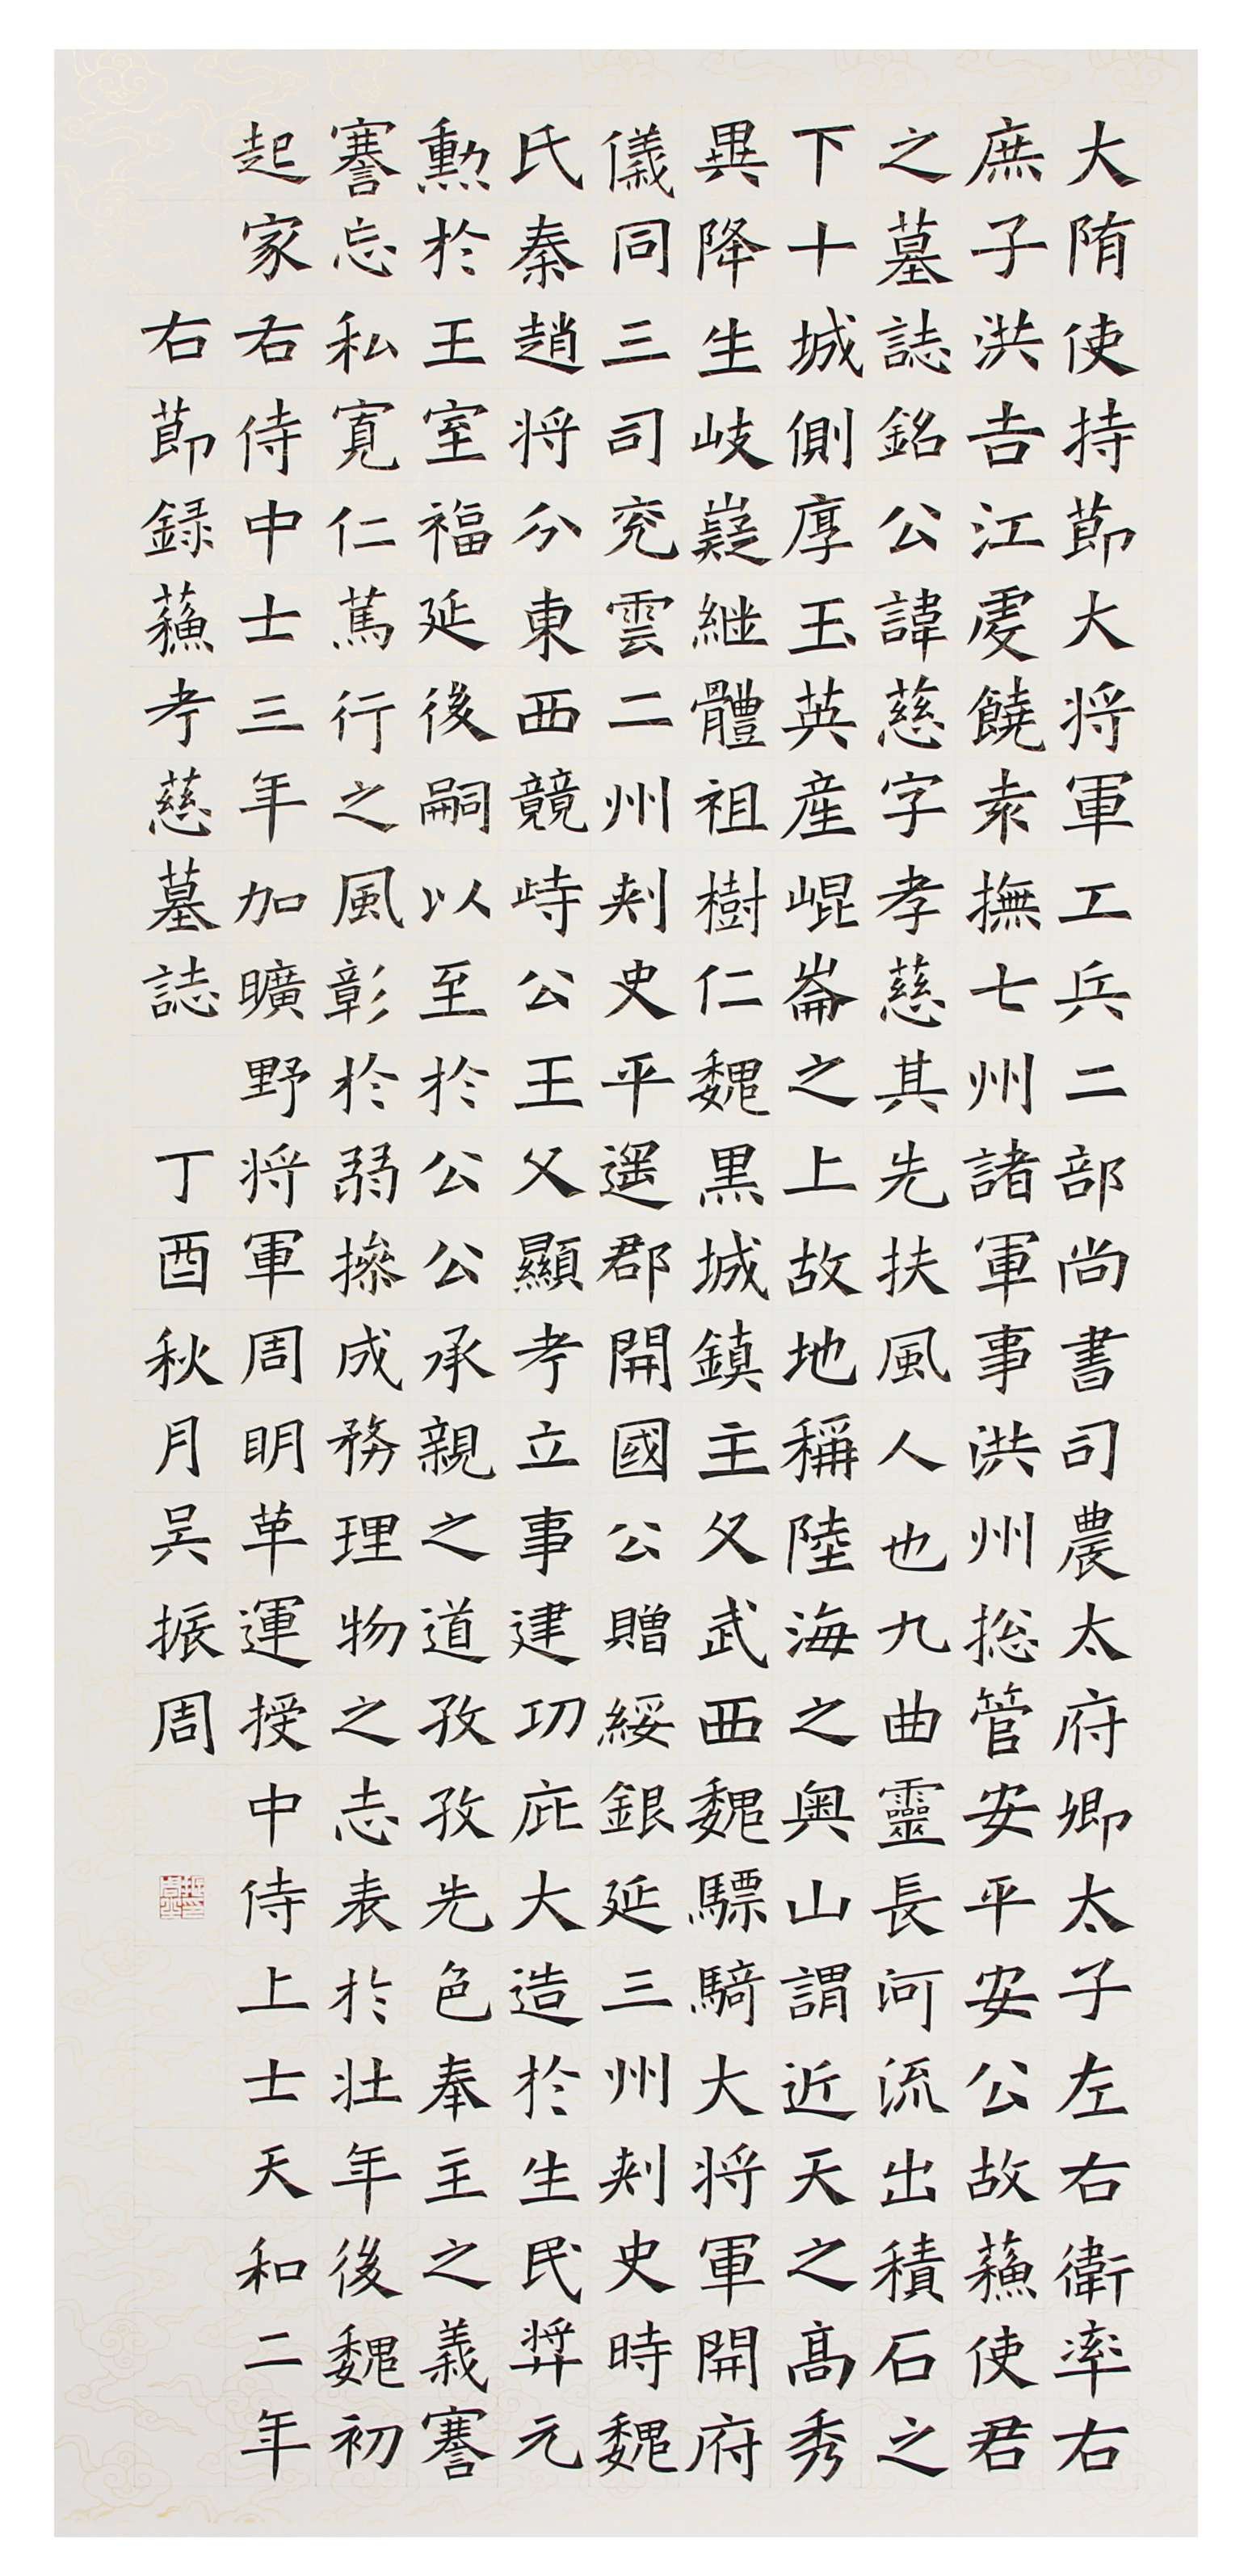 大隋使持節大将軍工兵二部尚書司農太府卿太子左右衛率右
庶子洪吉江虔饒袁撫七州諸軍事洪州捴管安平安公故蘓使君
之墓誌銘公諱慈字孝慈其先扶風人也九曲靈長河流出積石之
下十城側厚玉英産崐崙之上故地稱陸海之奥山謂近天之髙秀
異降生岐嶷継體祖樹仁魏黒城鎮主父武西魏驃騎大将軍開府
儀同三司兖雲二州刾史平遥郡開國公贈綏銀延三州刾史時魏
氏秦趙将分東西競峙公王父顯考立事建功庇大造於生民奨元
勲於王室福延後嗣以至於公公承親之道孜孜先色奉主之義謇
謇忘私寛仁篤行之風彰於弱掺成務理物之志表於壮年後魏初
起家右侍中士三年加曠野将軍周明革運授中侍上士天和二年
右節録蘓孝慈墓誌 丁酉秋月吴振周